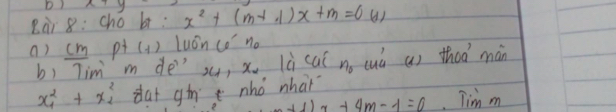 Bài 8: Cho pt: x² + (m+1)x + m = 0 (1)
a) cm pt (1) luôn có n₀
b) Tìm m để x₁, x₂ là các n₀ của (1) thoả mãn
x₁² + x₂² đạt gtn t nhỏ nhất
x + 4m - 1 = 0. Tìm m